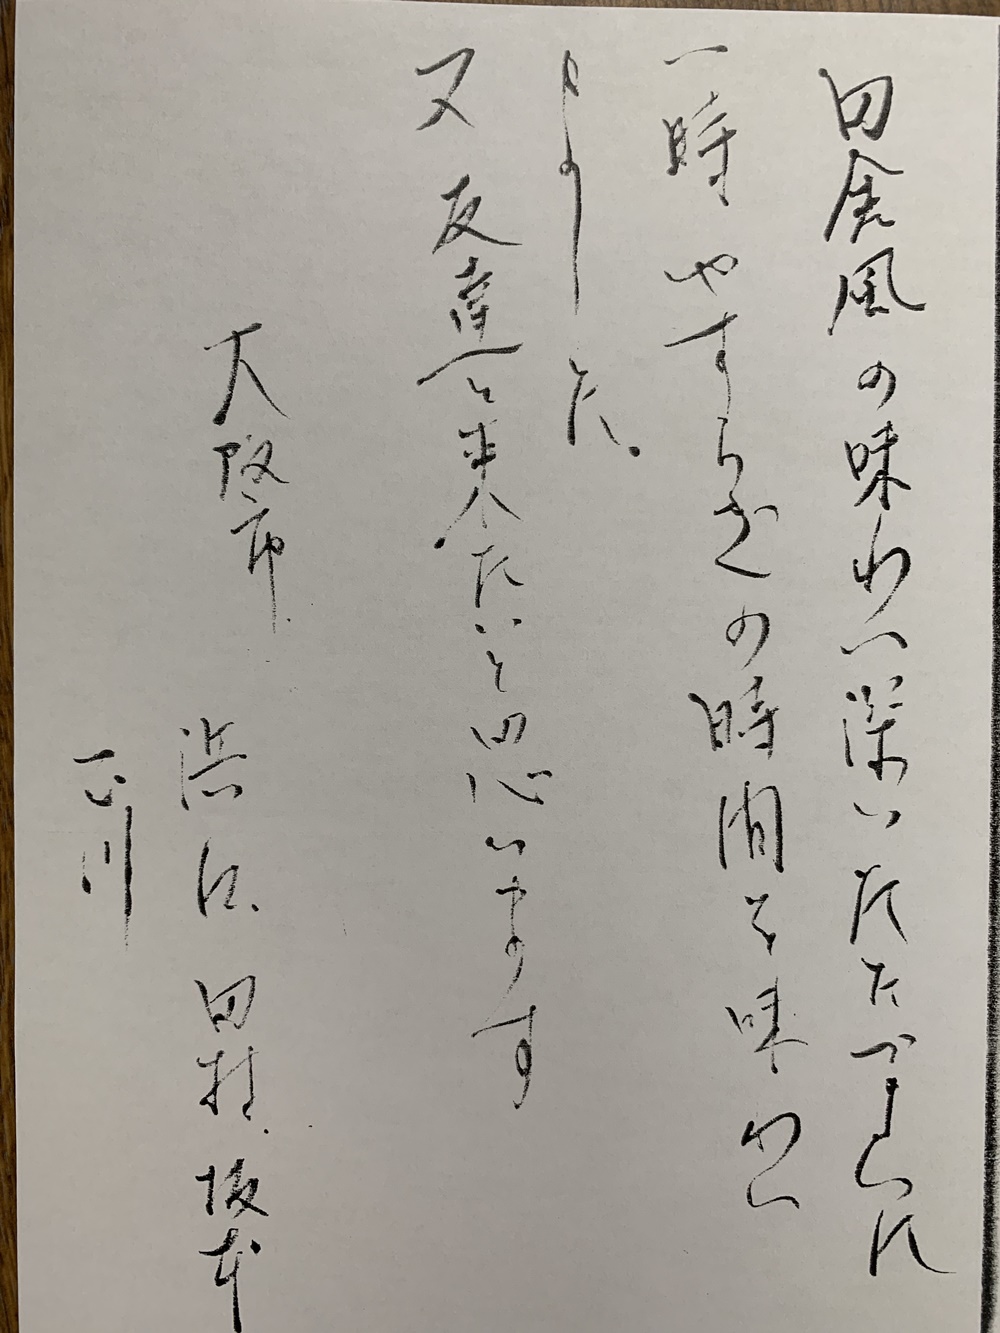 田舎風の味わい深いたたずまいに
一時やすらぎの時間を味わい
ました。
又友達と来たいと思います
大阪市
浜口、田村、坂本
下川